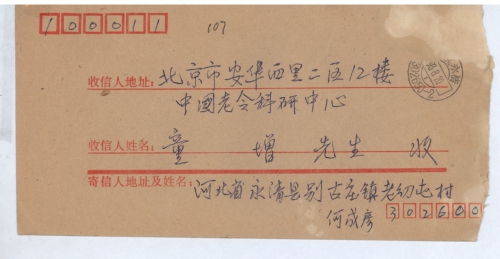 100011
107
收信人地址: 北京市安华西里二区12楼
中国老令科研中心
收信人姓名: 童增先生 收
寄信人地址及姓名: 河北省永清县别古庄镇老幼屯村
何成彦
302600